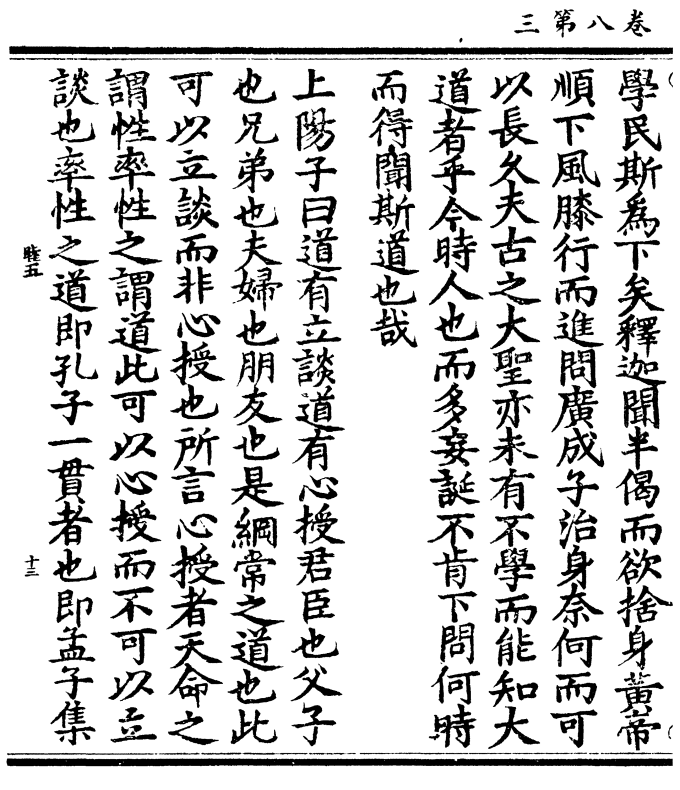 卷八第三
學民斯為下矣釋迦聞半偈而欲捨身黃帝
順下風膝行而進問廣成子治身奈何而可
以長久夫古之大聖亦未有不學而能知大
道者乎今時人也而多妄誕不肯下問何時
而得聞斯道也哉
上陽子曰道有立談道有心授君臣也父子
也兄弟也夫婦也朋友也是綱常之道也此
可以立談而非心授也所言心授者天命之
謂性率性之謂道此可以心授而不可以立
談也率性之道即孔子一貫者也即孟子集
睦五
十三